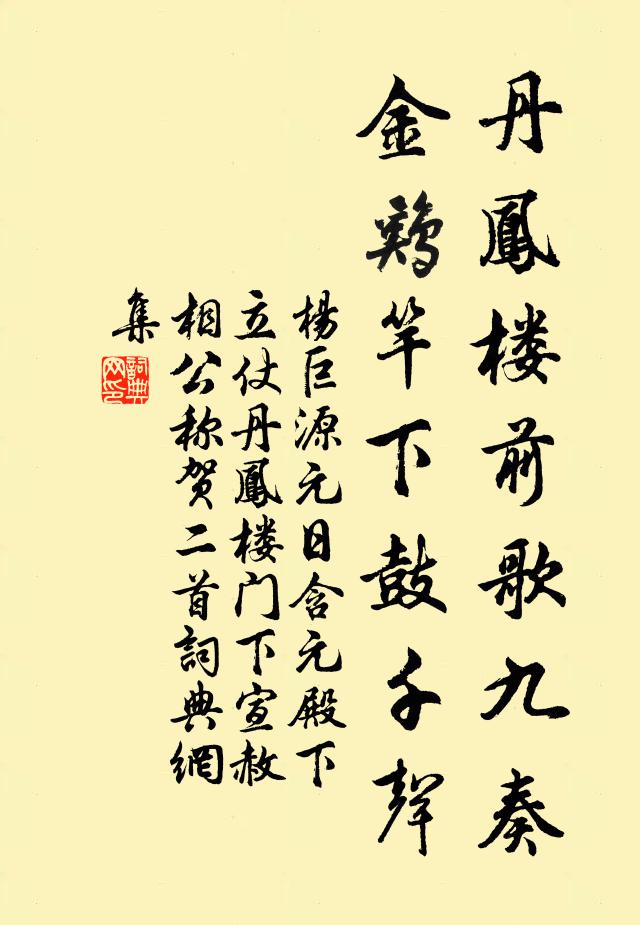 丹鳳楼前歌九奏
金鷄竿下鼓千聲
楊巨源元日含元殿下
立仗丹鳳楼门下宣赦
相公称贺二首詞典網
集
詞典
网印